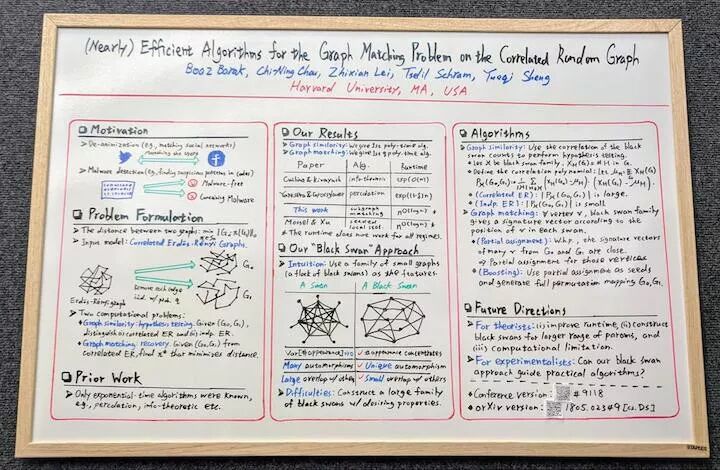 (Nearly) Efficient Algorithms for the Graph Matching Problem on the Correlated Random Graph
Boaz Barak, Chi-Ning Chou, Zhixian Lei, Tselil Schramm, Yueqi Sheng
Harvard University, MA, USA
Motivation
De-anonimization (e.g., matching social networks)
Matching the users
Malware detection (e.g., finding suspicious patterns in codes)
Malware-free
Containing Malware
Problem Formulation
The distance between two graphs: min ||G₀-π(G₁)||₀
Input model: Correlated Erdős-Rényi Graphs.
G₀
G₁
Erdős-Rényi graph
remove each edge
i.i.d. w/ prob.
Two computational problems:
Graph similarity: hypothesis testing. Given (G₀,G₁),
distinguish (i) correlated ER and (ii) indp. ER.
Graph matching: recovery. Given (G₀,G₁) from
correlated ER, find π* that minimizes distance.
Prior Work
Only exponential-time algorithms were known,
e.g., percolation, info-theoretic etc.
Our Results
Graph similarity: We give 1st poly-time alg.
Graph matching: We give 1st poly-time alg.
Paper Alg. Runtime
Cullina & Kivayash info-theoretic exp(O(n))
Yartseva & Grossglauser percolation
This work subgraph matching n^O(log n)
Mossel & Xu seeded local stat. n^O(log n)
* The runtime does not work for all regimes.
Our "Black Swan" Approach
Intuition: Use a family of small graphs
(a flock of black swans) as the features.
A Swan A Black Swan
#appearance concentrates
Many automorphism Unique automorphism
Large overlap w/ others Small overlap w/ others
Difficulties: Construct a large family
of black swans w/ desiring properties.
Algorithms
Graph similarity: Use the correlation of the black
swan counts to perform hypothesis testing.
Let H be black swan family. X_H(G) = # H in G.
Define the correlation polynomial:
(Correlated ER): |P_H(G₀,G₁)| is large.
(Indp. ER): |P_H(G₀,G₁)| is small.
Graph matching: ∀ vertex v, black swan family
gives a signature vector according to the
position of v in each swan.
(Partial assignment): W.h.p., the signature vectors
of many v from G₀ and G₁ are close.
⇒ Partial assignment for those vertices
(Boosting): Use partial assignment as seeds
and generate full permutation mapping G₀, G₁.
Future Directions
For theorists: (i) improve runtime, (ii) construct
black swans for larger range of params, and
(iii) computational limitation.
For experimentalists: Can our black swan
approach guide practical algorithms?
Conference version: #9118
arXiv version: 1805.02349 [cs.DS]
STAPLES